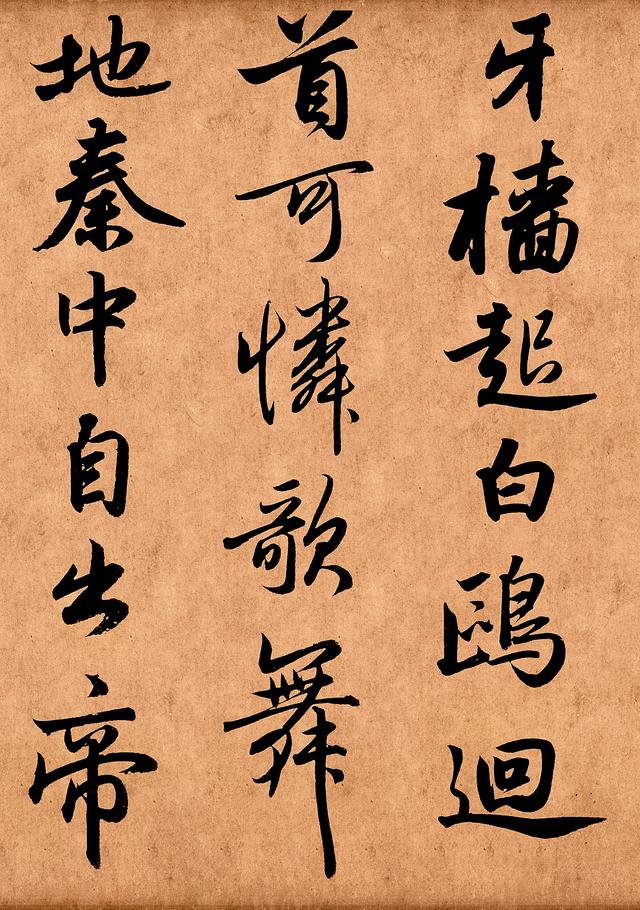 牙檣起白鷗迴
首可憐歌舞
地秦中自出帝